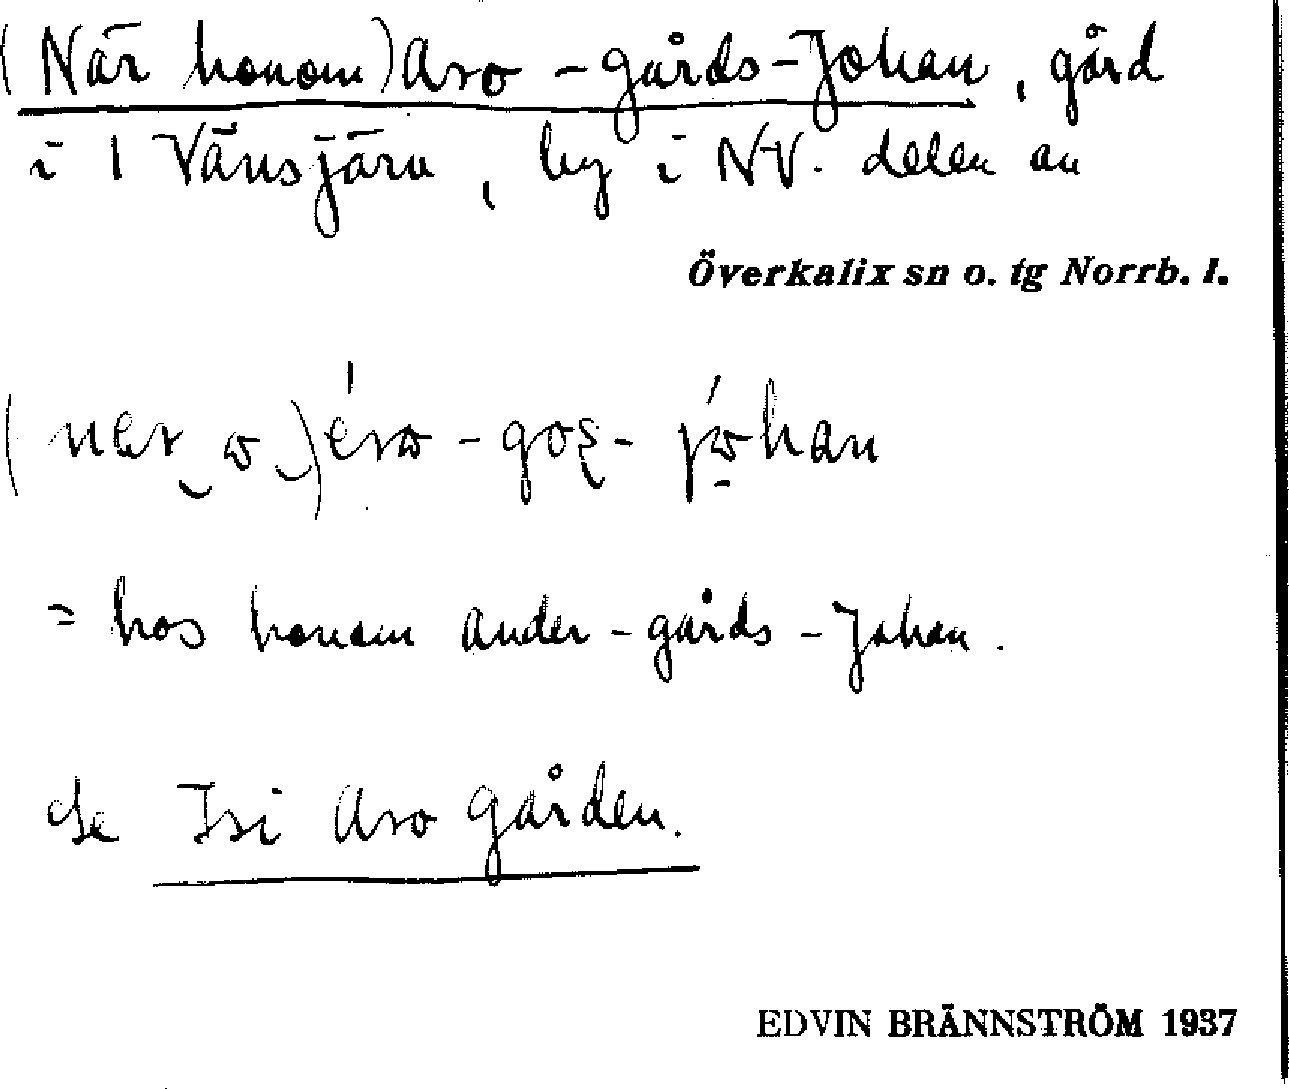 (När honom) Aro-gårds-Johan, gård
i 1 Vänsjärv, by i NV. delen av
Överkalix sn o. tg Norrb. l.
(ner o) éro-goṣ-jóhan
= hos honom ander-gårds-Johan.
Se Isi Arogården.
EDVIN BRÄNNSTRÖM 1937